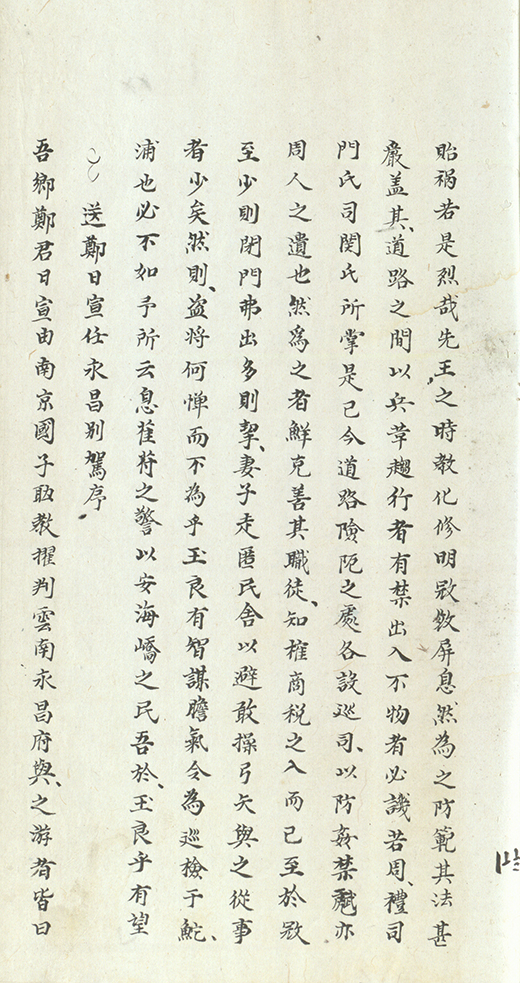 貽禍若是烈哉先王之時教化修明㓂敓屏息然為之防範其法甚
嚴盖其道路之間以兵革趨行者有禁出入不物者必譏若周禮司
門氏司関氏所掌是已今道路險阨之處各設巡司以防姦禁慝亦
周人之遺也然為之者鮮克善其職徒知榷商税之入而已至於㓂
至少則閉門弗出多則挈妻子走匿民舍以避敢操弓矢與之從事
者少矣然則盗将何憚而不為乎玉良有智謀膽氣今為巡檢于鮀
浦也必不如予所云息萑苻之警以安海嶠之民吾於玉良乎有望
送鄭日宣任永昌别駕序
吾鄉鄭君日宣由南京國子助教擢判雲南永昌府與之游者皆曰